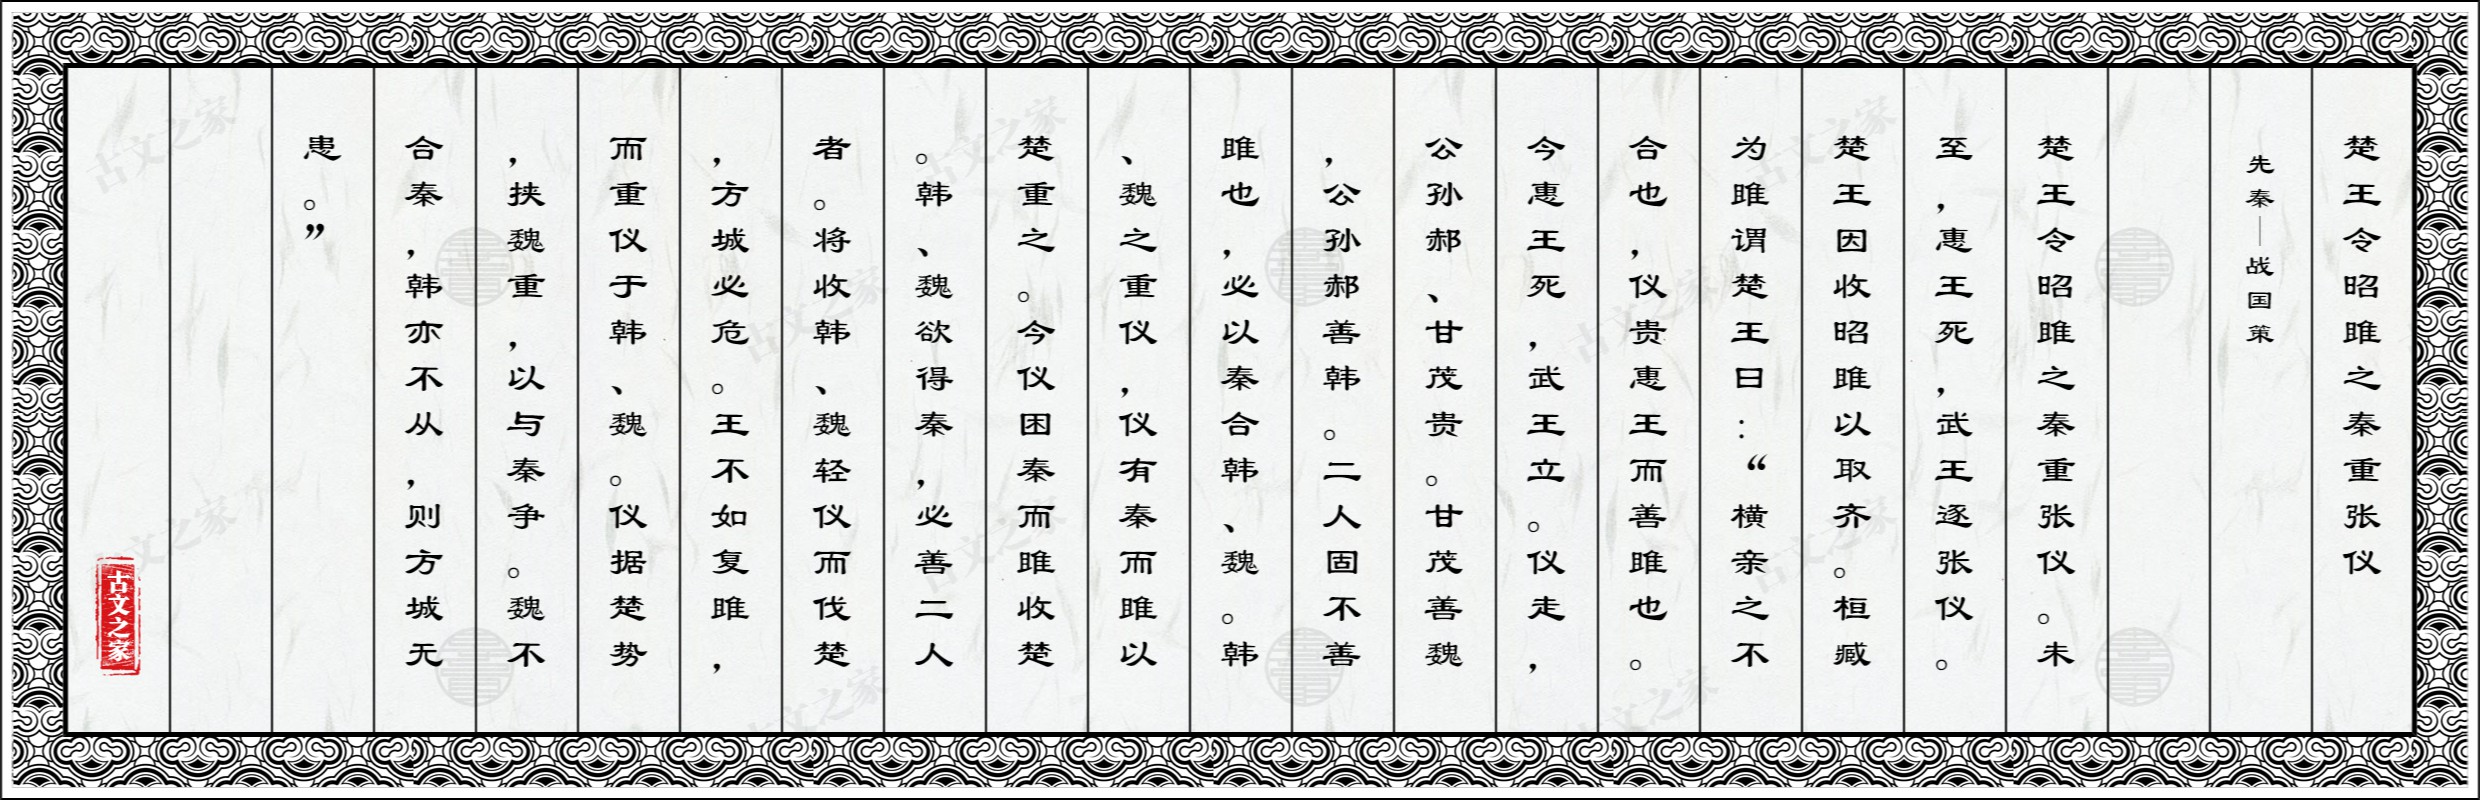 楚王令昭雎之秦重张仪
先秦—战国策
楚王令昭雎之秦重张仪。未
至，惠王死，武王逐张仪。
楚王因收昭雎以取齐。桓臧
为雎谓楚王曰：“横亲之不
合也，仪贵惠王而善雎也。
今惠王死，武王立。仪走，
公孙郝、甘茂贵。甘茂善魏
，公孙郝善韩。二人固不善
雎也，必以秦合韩、魏。韩
、魏之重仪，仪有秦而雎以
楚重之。今仪困秦而雎收楚
。韩、魏欲得秦，必善二人
者。将收韩、魏轻仪而伐楚
，方城必危。王不如复雎，
而重仪于韩、魏。仪据楚势
，挟魏重，以与秦争。魏不
合秦，韩亦不从，则方城无
患。”
古文之家